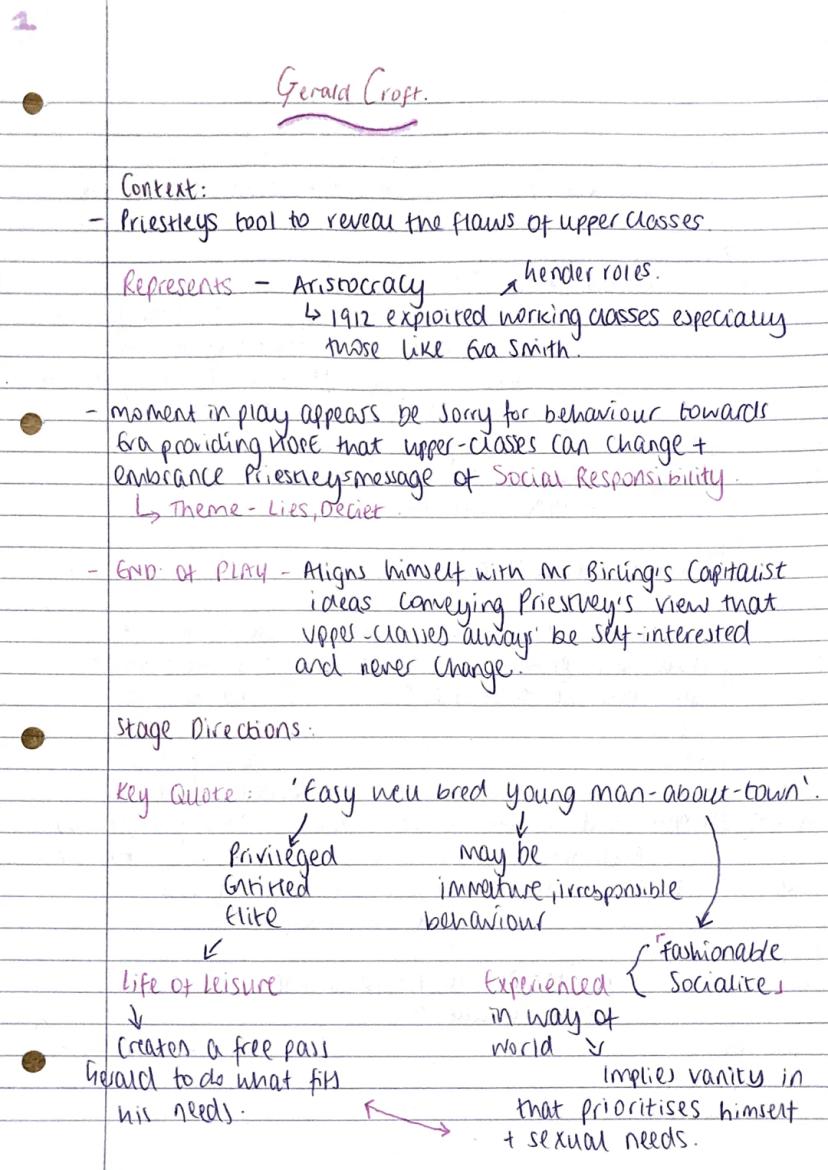 1
Gerald Croft.
Context:
- Priestleys tool to reveal the flaws of upper classes.
Represents - Aristocracy
hender roles.
↳ 1912 exploited working classes especially
those like Eva Smith.
- moment in play appears be sorry for behaviour towards
Eva providing HOPE that upper-classes can change +
embrance Priestleys message of Social Responsibility.
↳ Theme - Lies, Deciet.
- END Of PLAY - Aligns himself with Mr Birling's Capitalist
ideas conveying Priestley's view that
upper-classes always be self-interested
and never change.
Stage Directions:
Key Quote: 'Easy well bred young man-about-town'.
Privileged
Entitled
Elite
may be
immature, irresponsible
behaviour
Fashionable
Socialite
Life of Leisure
Experienced
in way of
world
Creates a free pass
Gerald to do what fits
his needs.
Implies vanity in
that prioritises himself
+ sexual needs.